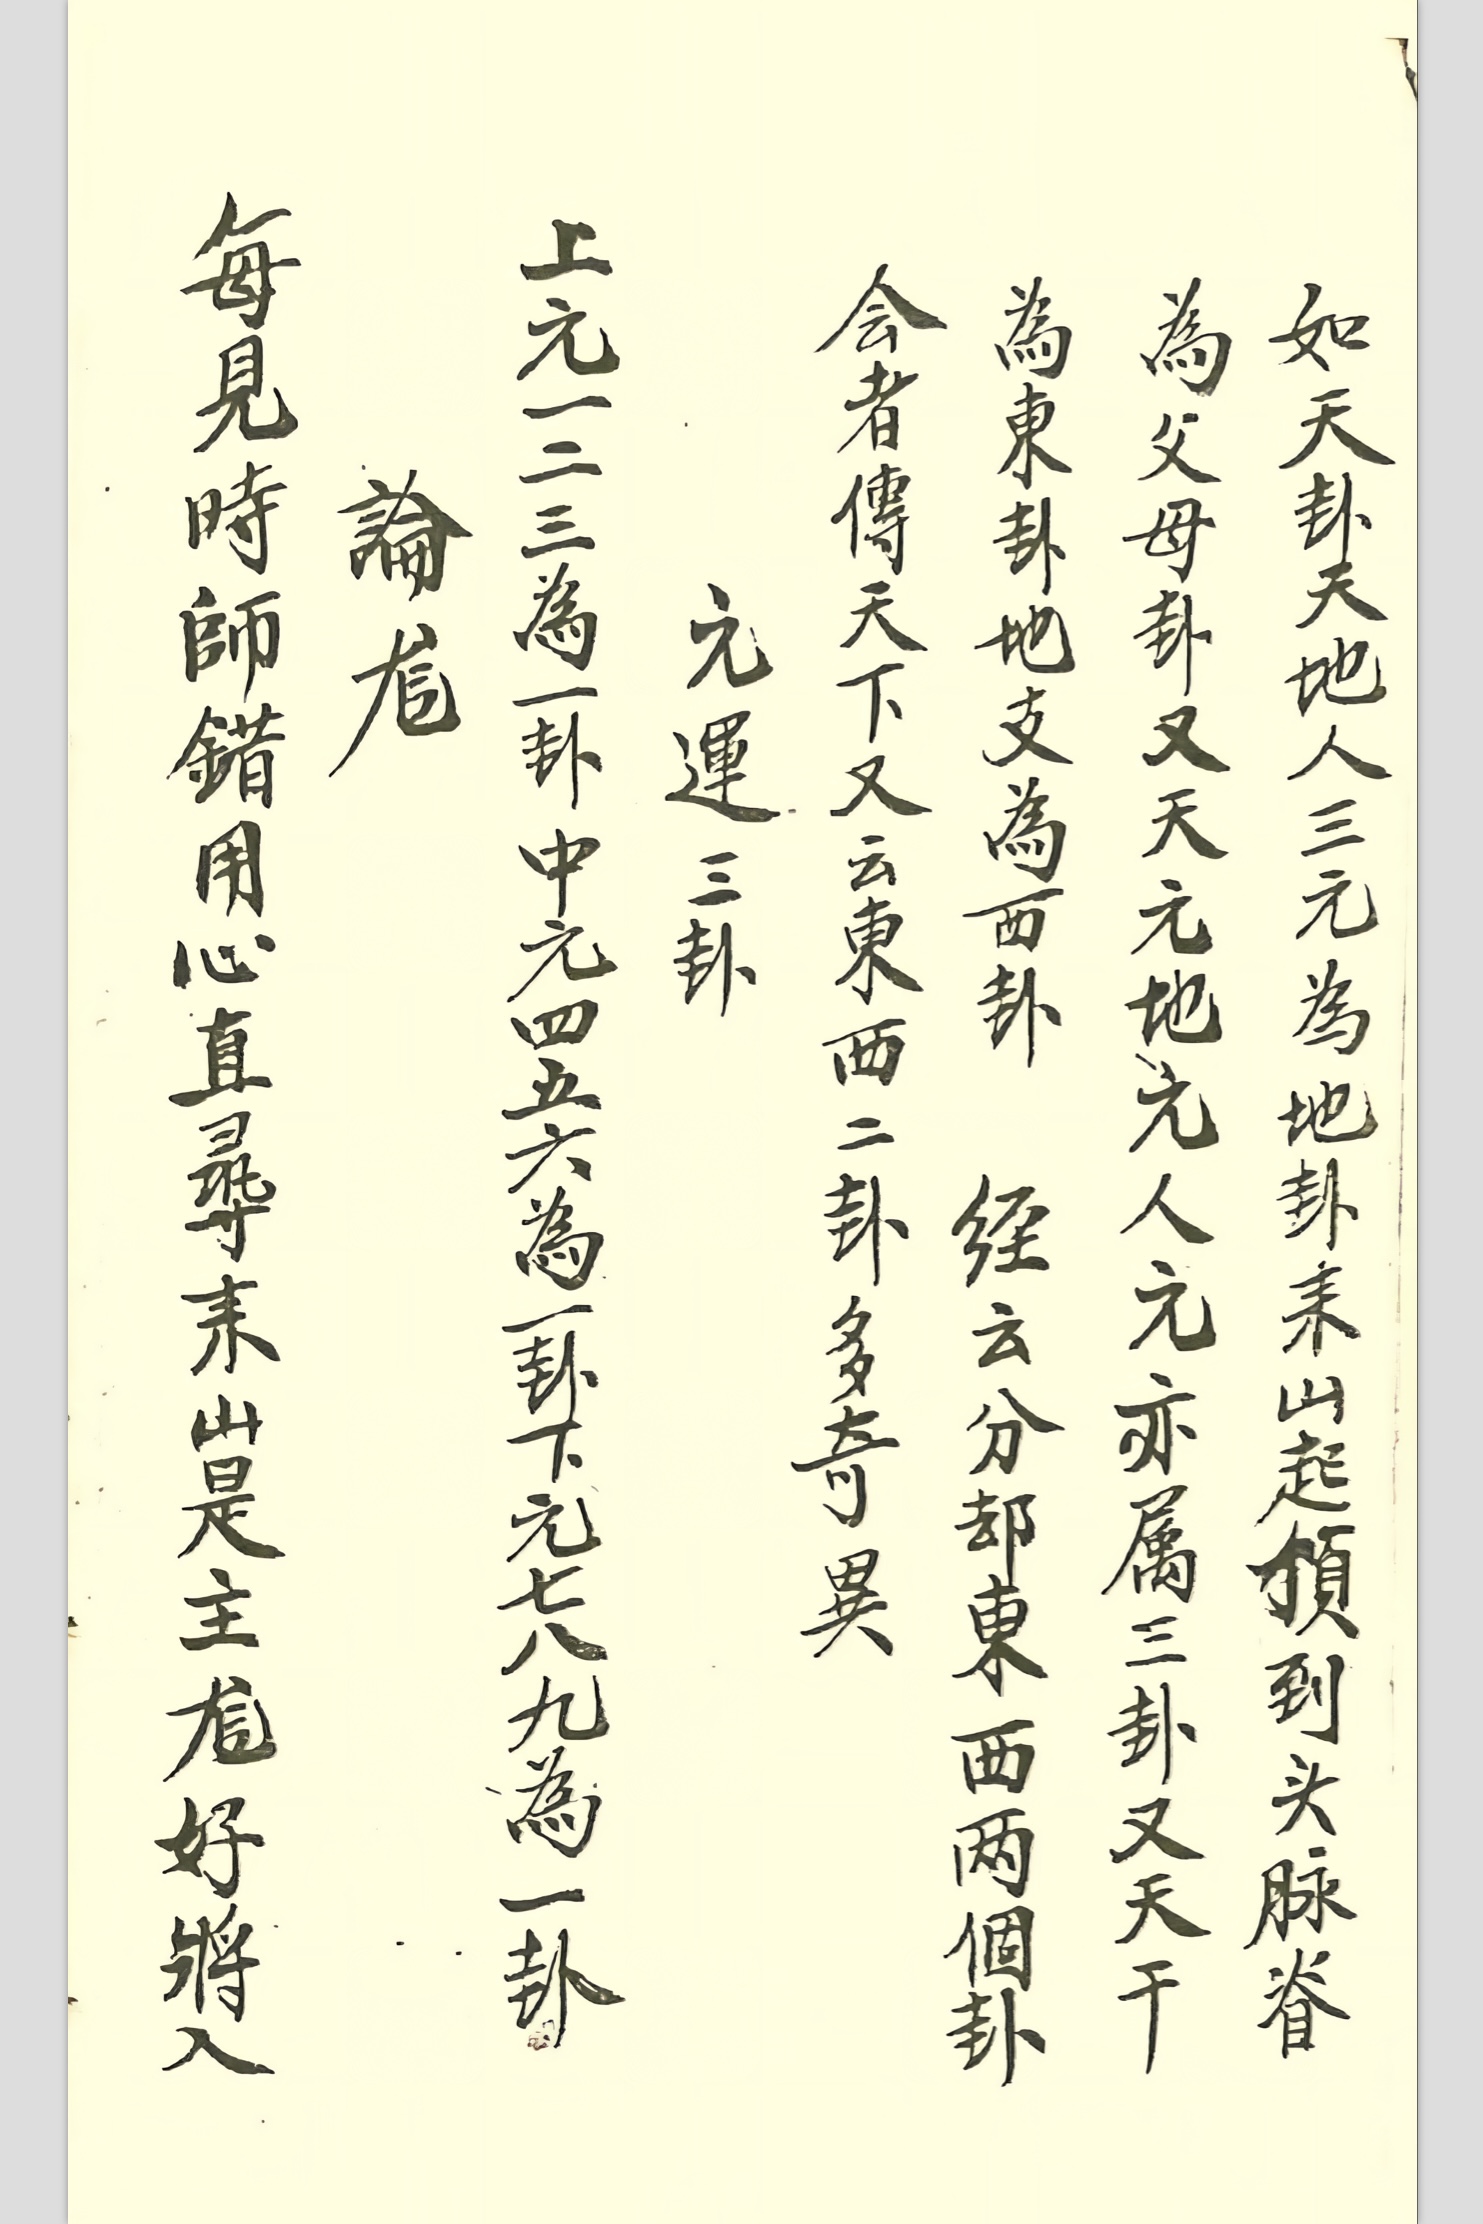 如天卦天地人三元為地卦来山起頂到头脉脊
為父母卦又天元地元人元亦属三卦又天干
為東卦地支為西卦　経云分却東西两個卦
会者傳天下又云東西二卦多奇異
元運三卦
上元一二三為一卦中元四五六為一卦下元七八九為一卦
論
每見時師錯用心直尋来山是主好將入